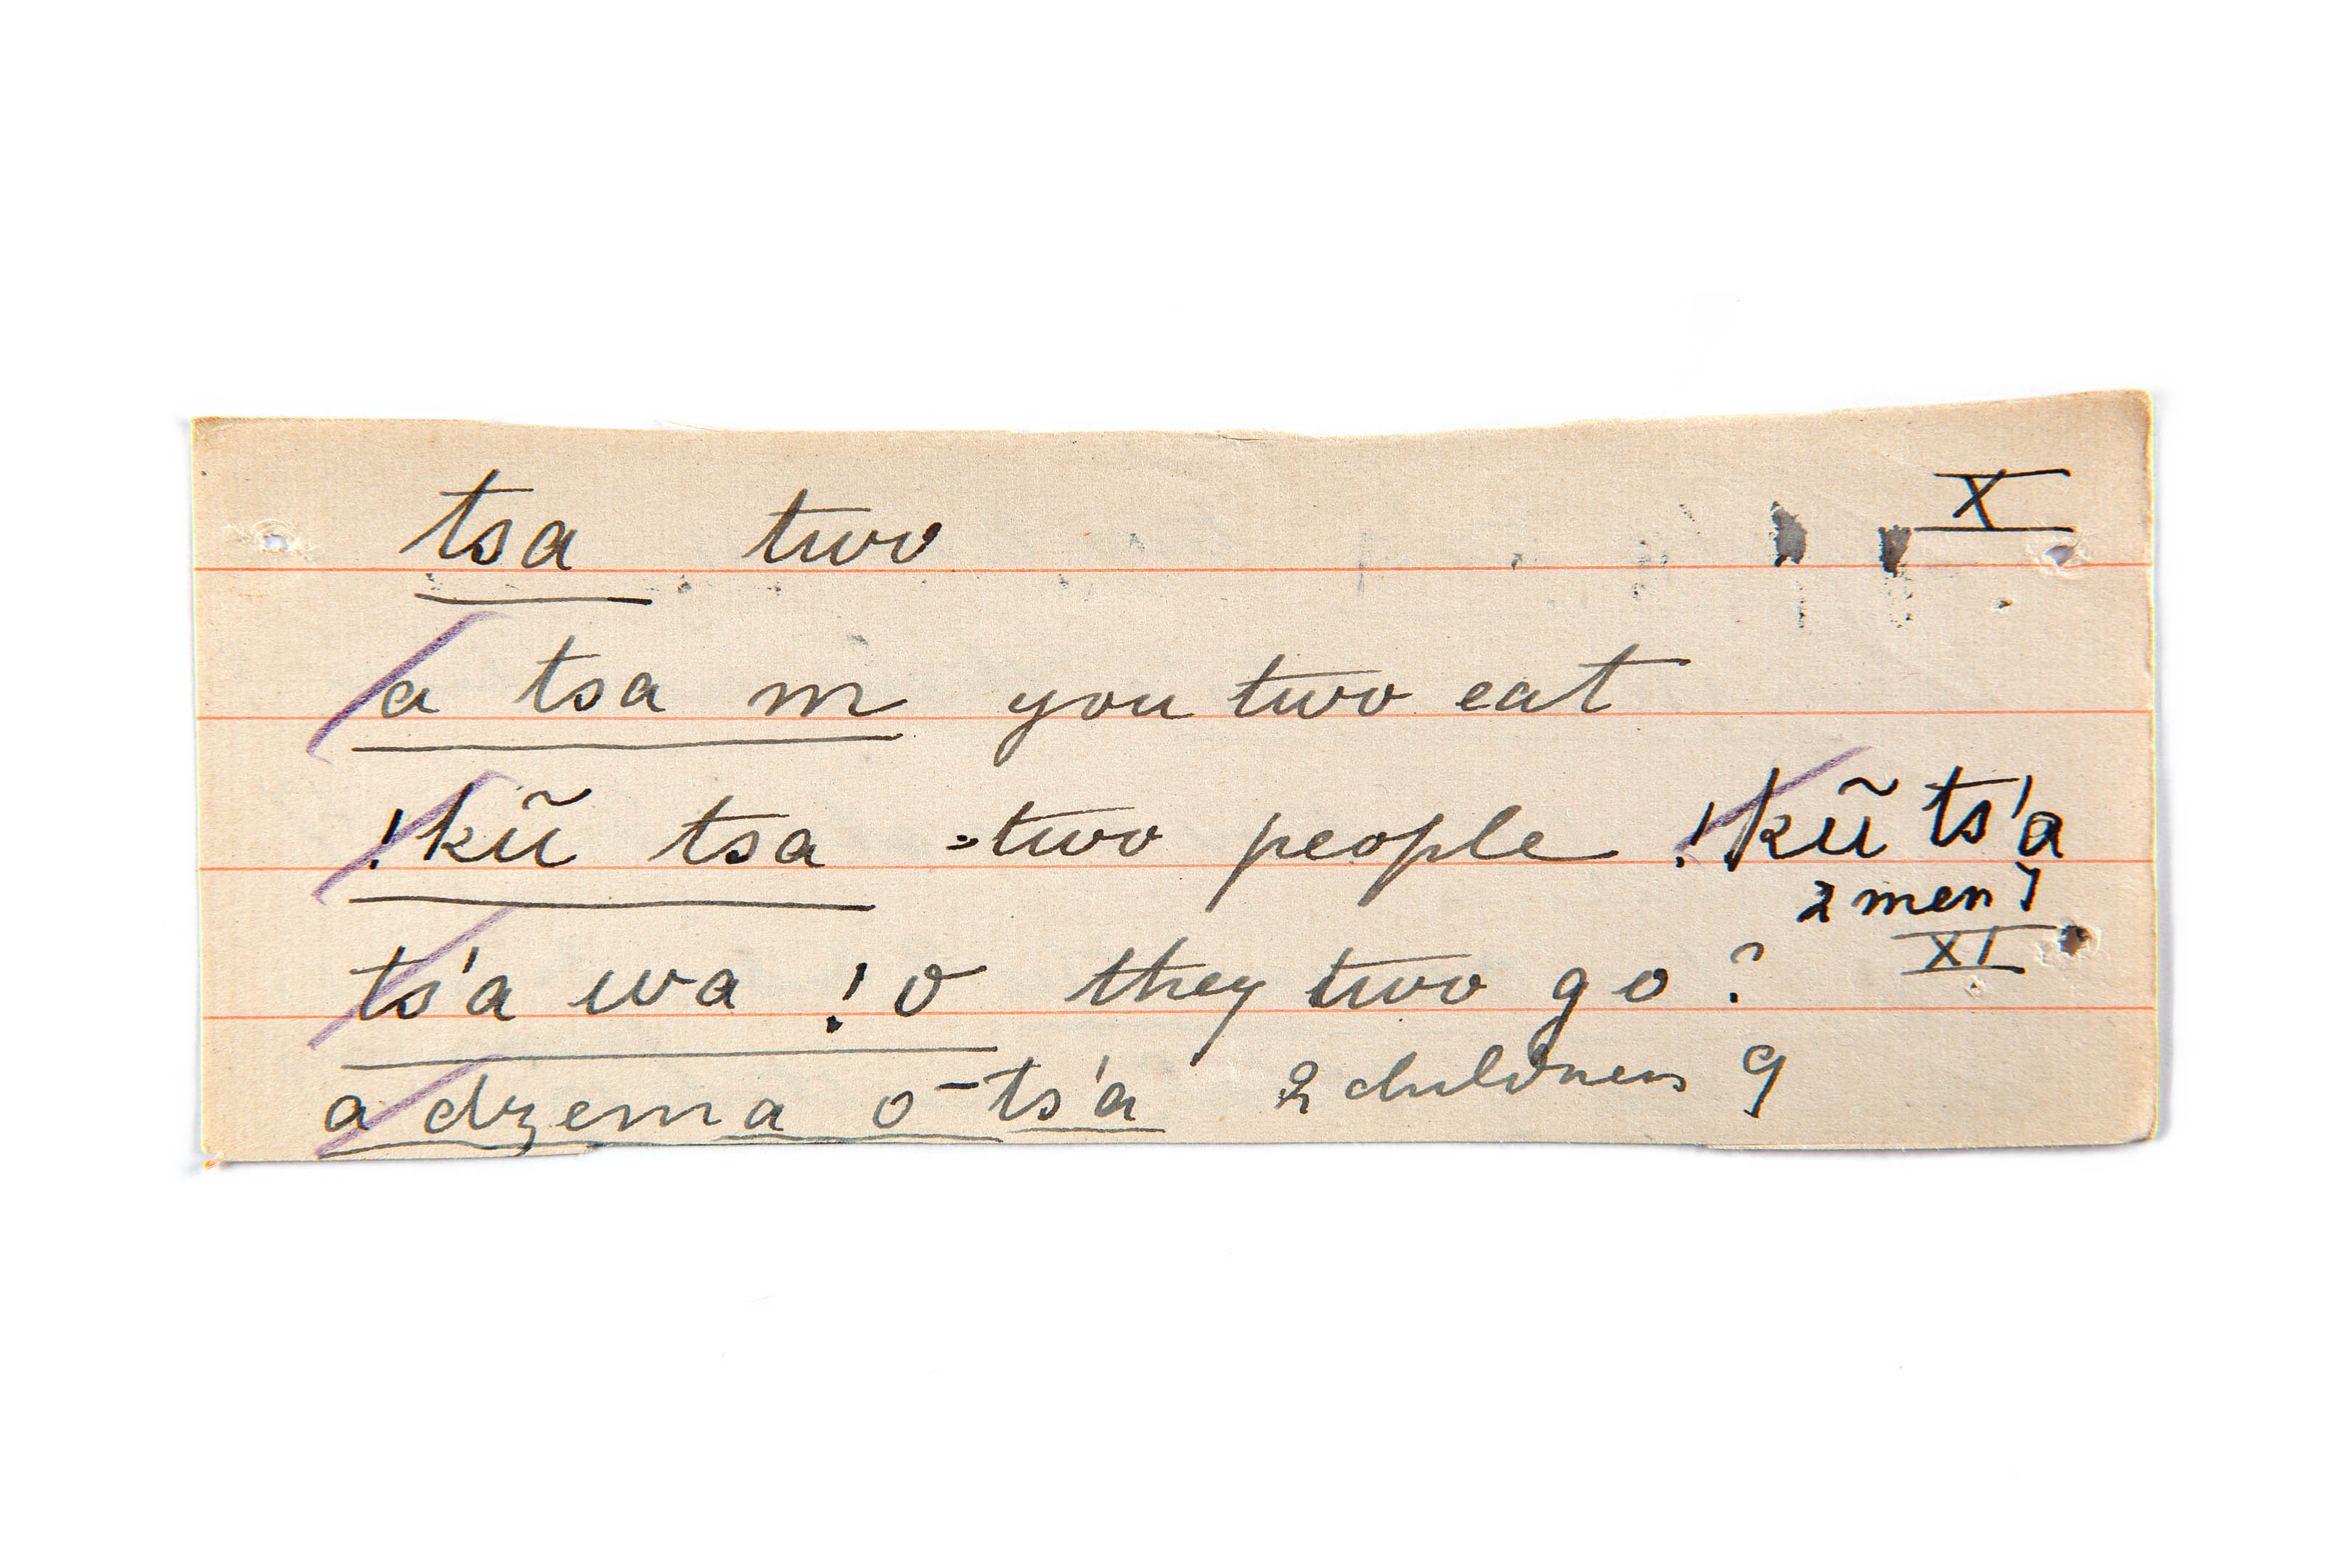 tsa two X
a tsa m you two eat
!kũ tsa =two people !kũ ts'a
2 men 7
ts'a wa !o they two go? XI
a dzema o-ts'a 2 children 9